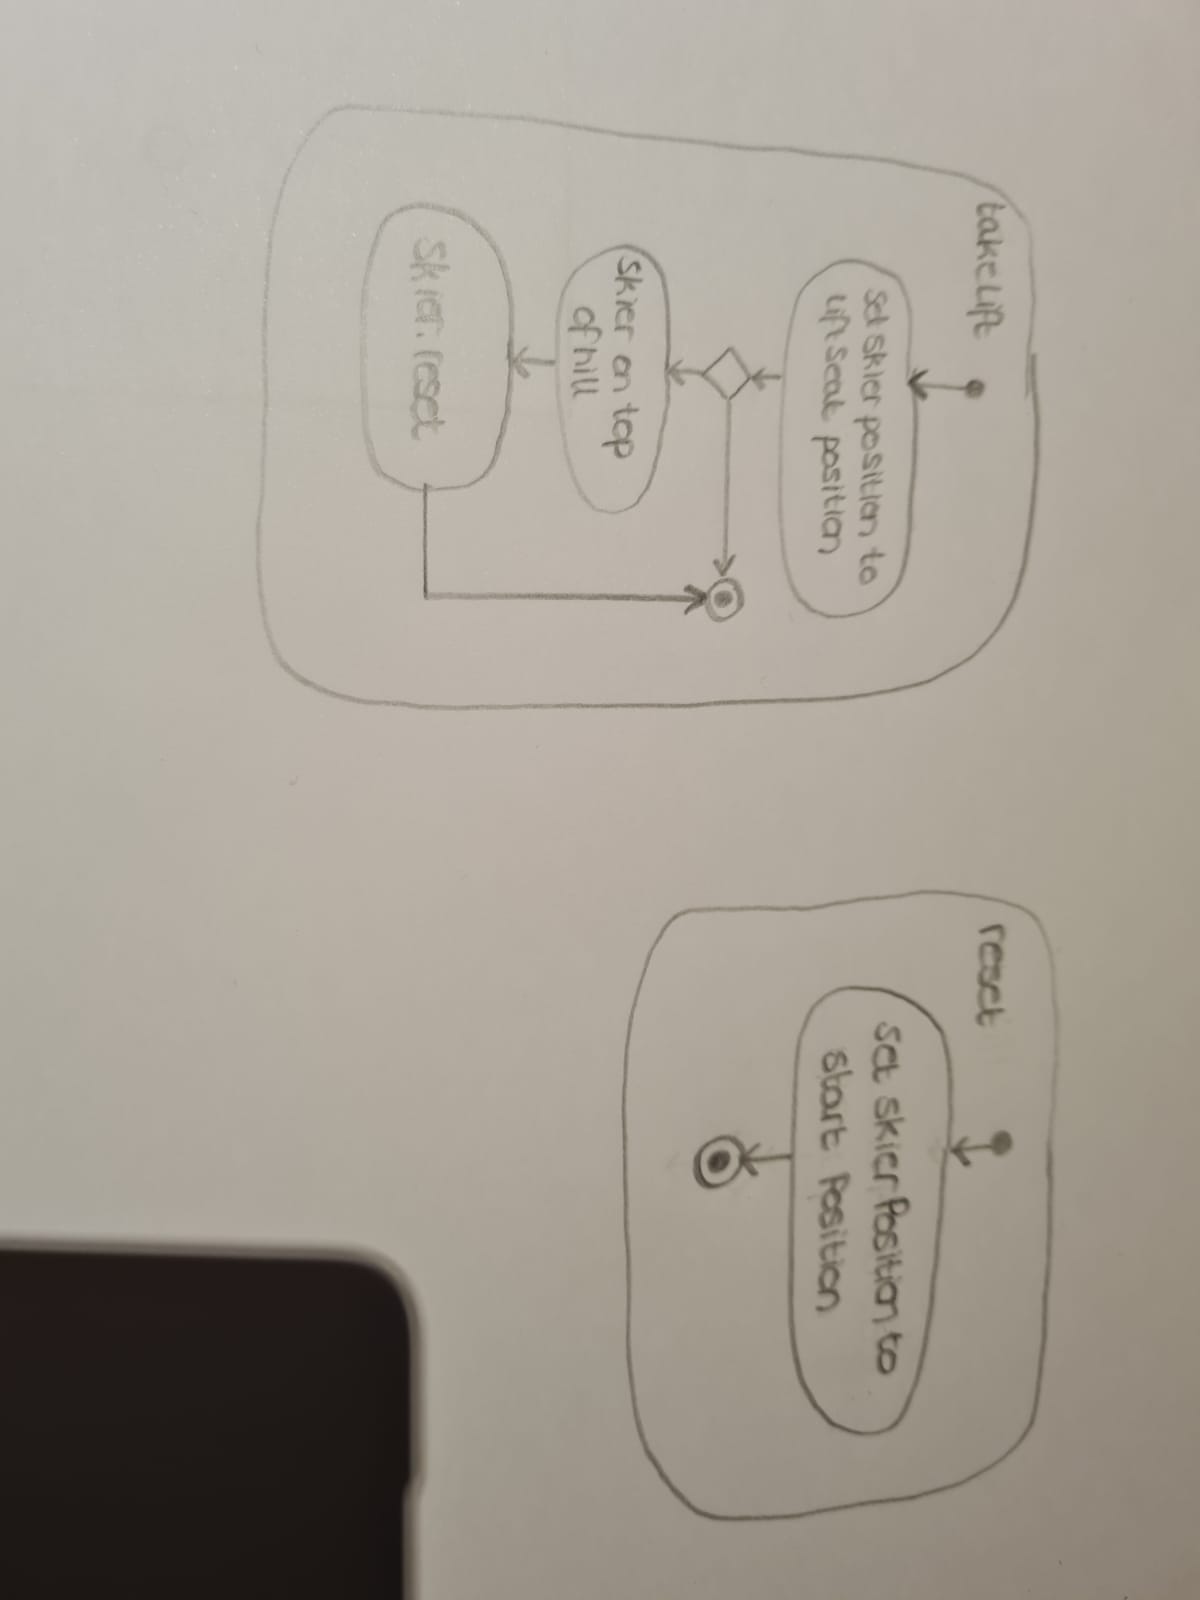 takeLift
Set skier position to
Lift Seat position
Skier on top
of hill
Skier.reset
reset
Set skier Position to
Start Position